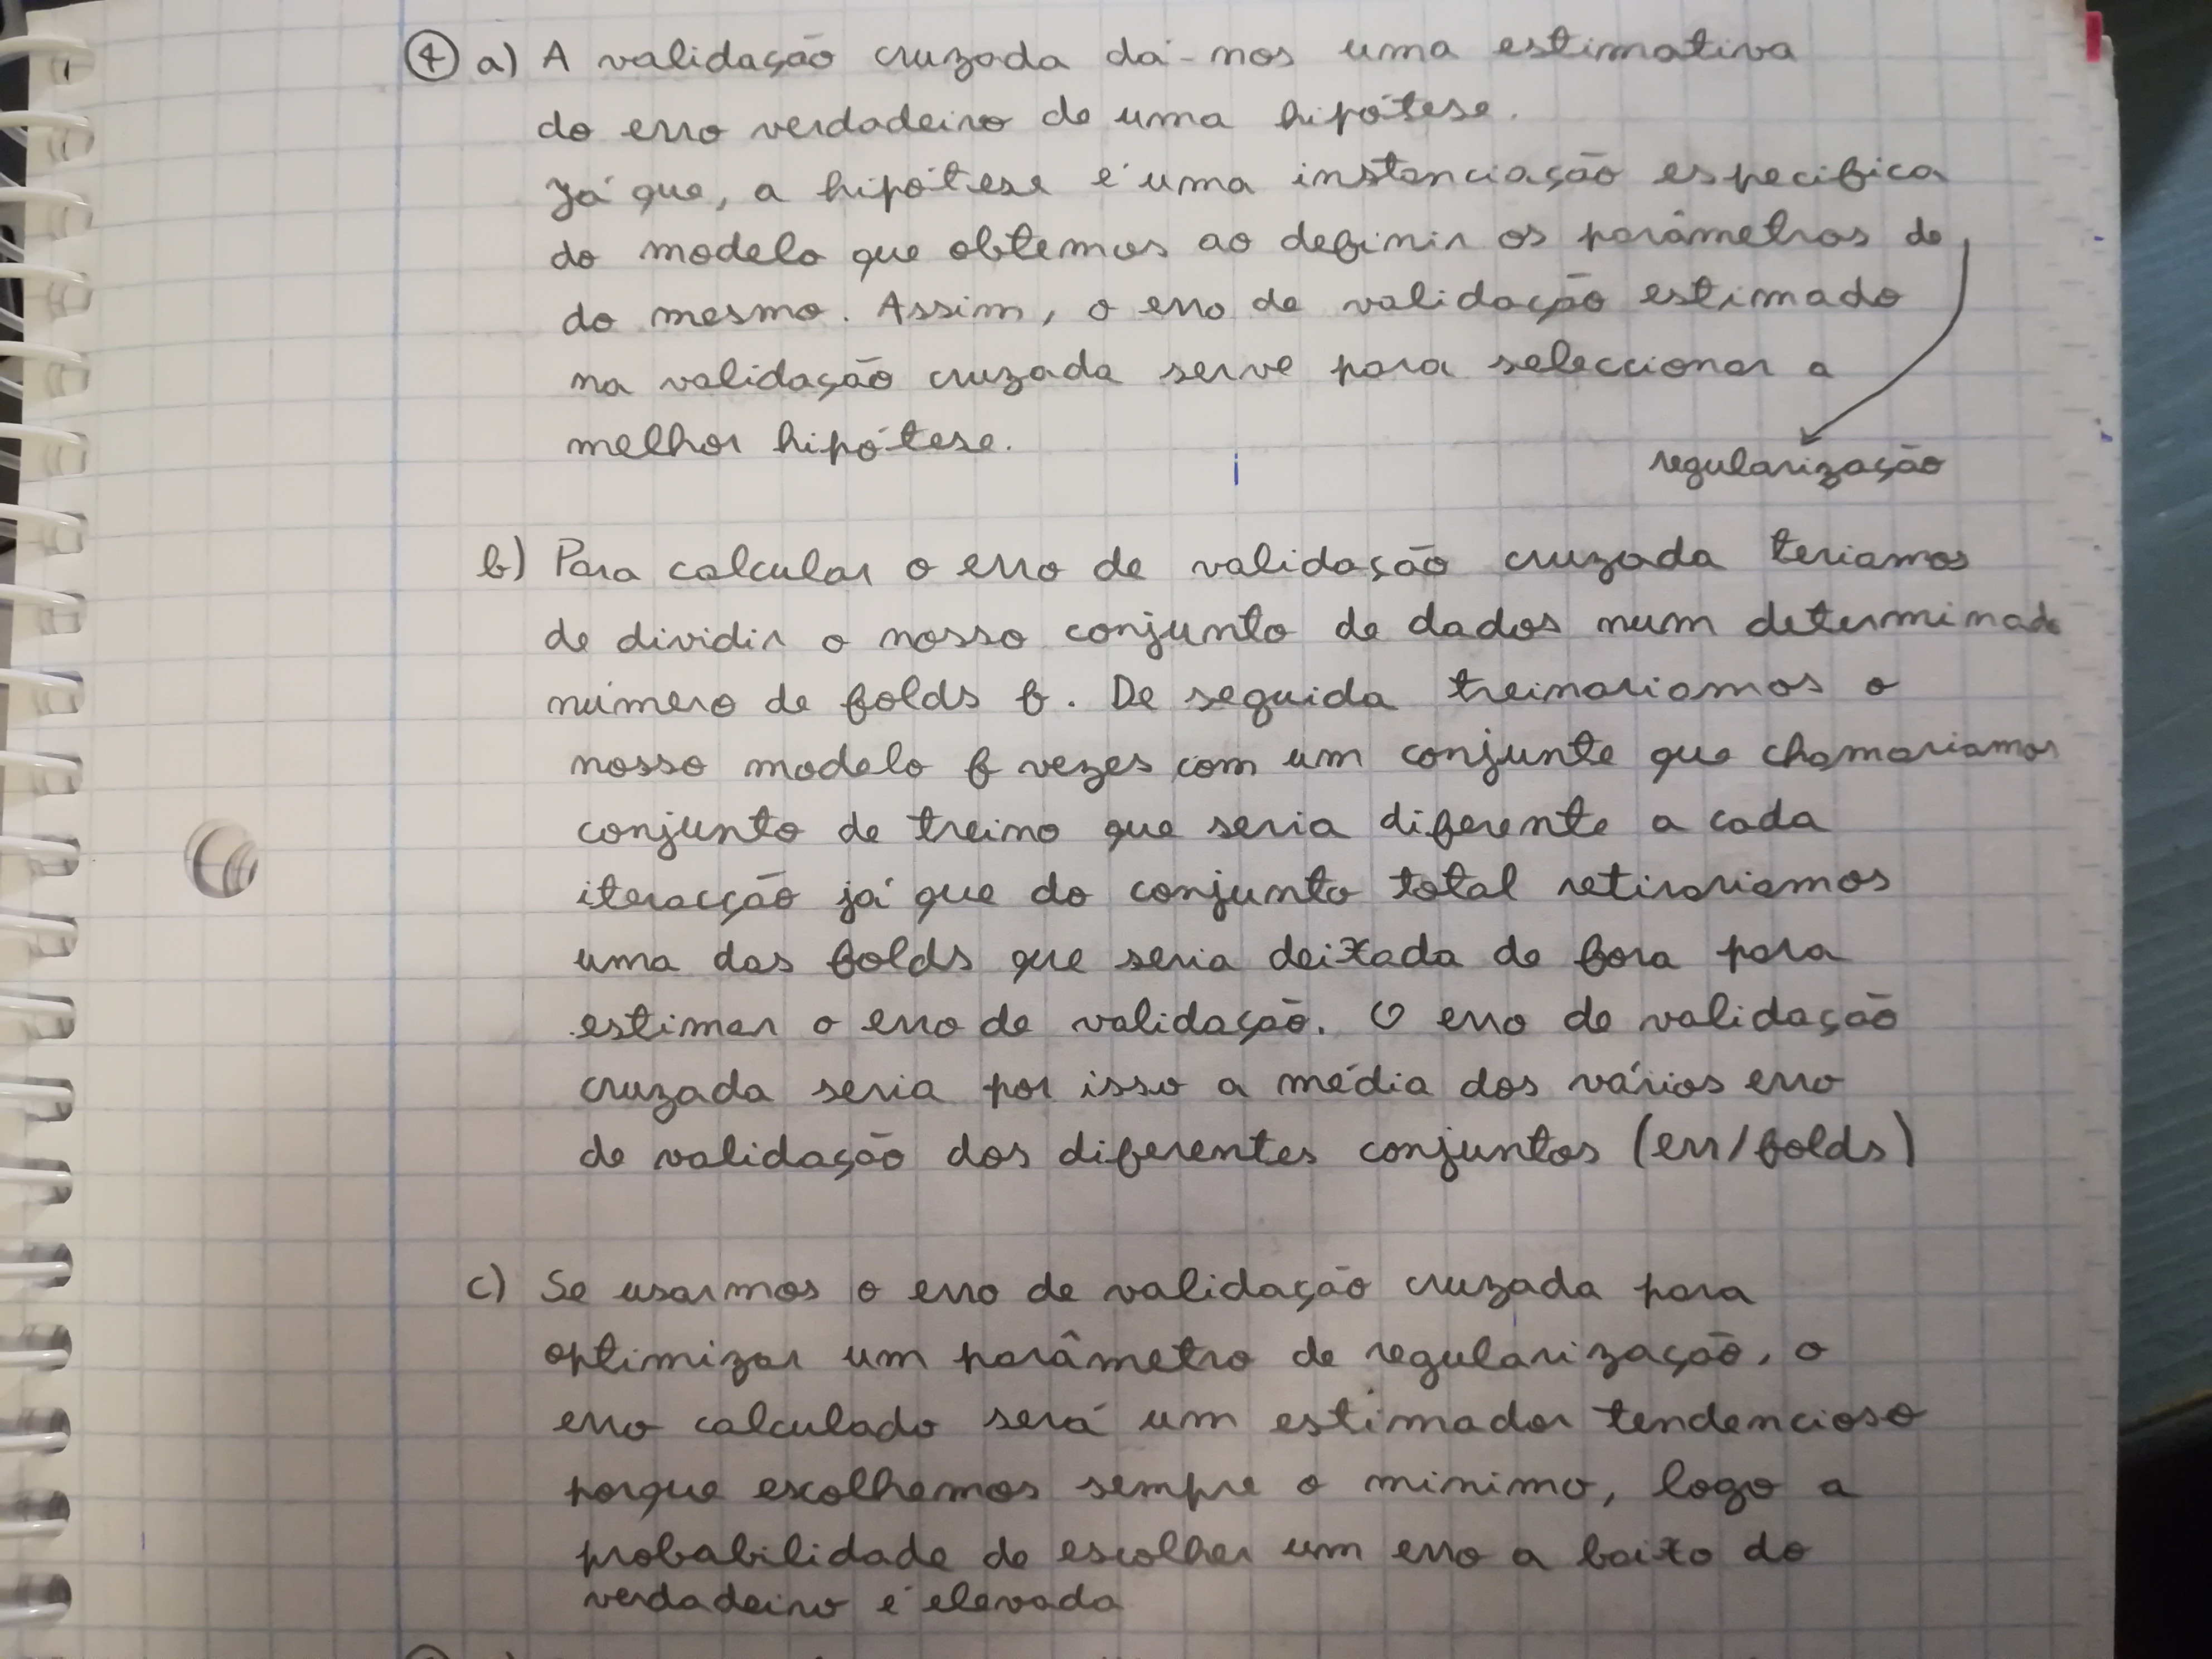 ④ a) A validação cruzada dá-nos uma estimativa
do erro verdadeiro de uma hipótese.
Já que, a hipótese é uma instanciação especifica
do modelo que obtemos ao definir os parâmetros de
do mesmo. Assim, o erro de validação estimado
na validação cruzada serve para seleccionar a
melhor hipótese.
regularização
b) Para calcular o erro de validação cruzada teriamos
de dividir o nosso conjunto de dados num determinado
número de folds f. De seguida treinariamos o
nosso modelo f vezes com um conjunte que chamariamos
conjunto de treino que seria diferente a cada
iteracção já que do conjunto total retirariamos
uma das folds que seria deixada de fora para
estimar o erro de validação. O erro de validação
cruzada seria por isso a média dos vários erro
de validação dos diferentes conjuntos (err/folds)
c) Se usarmos o erro de validação cruzada para
optimizar um parâmetro de regularização, o
erro calculado será um estimador tendencioso
porque escolhemos sempre o minimo, logo a
probabilidade de escolher um erro a baixo do
verdadeiro é elevada